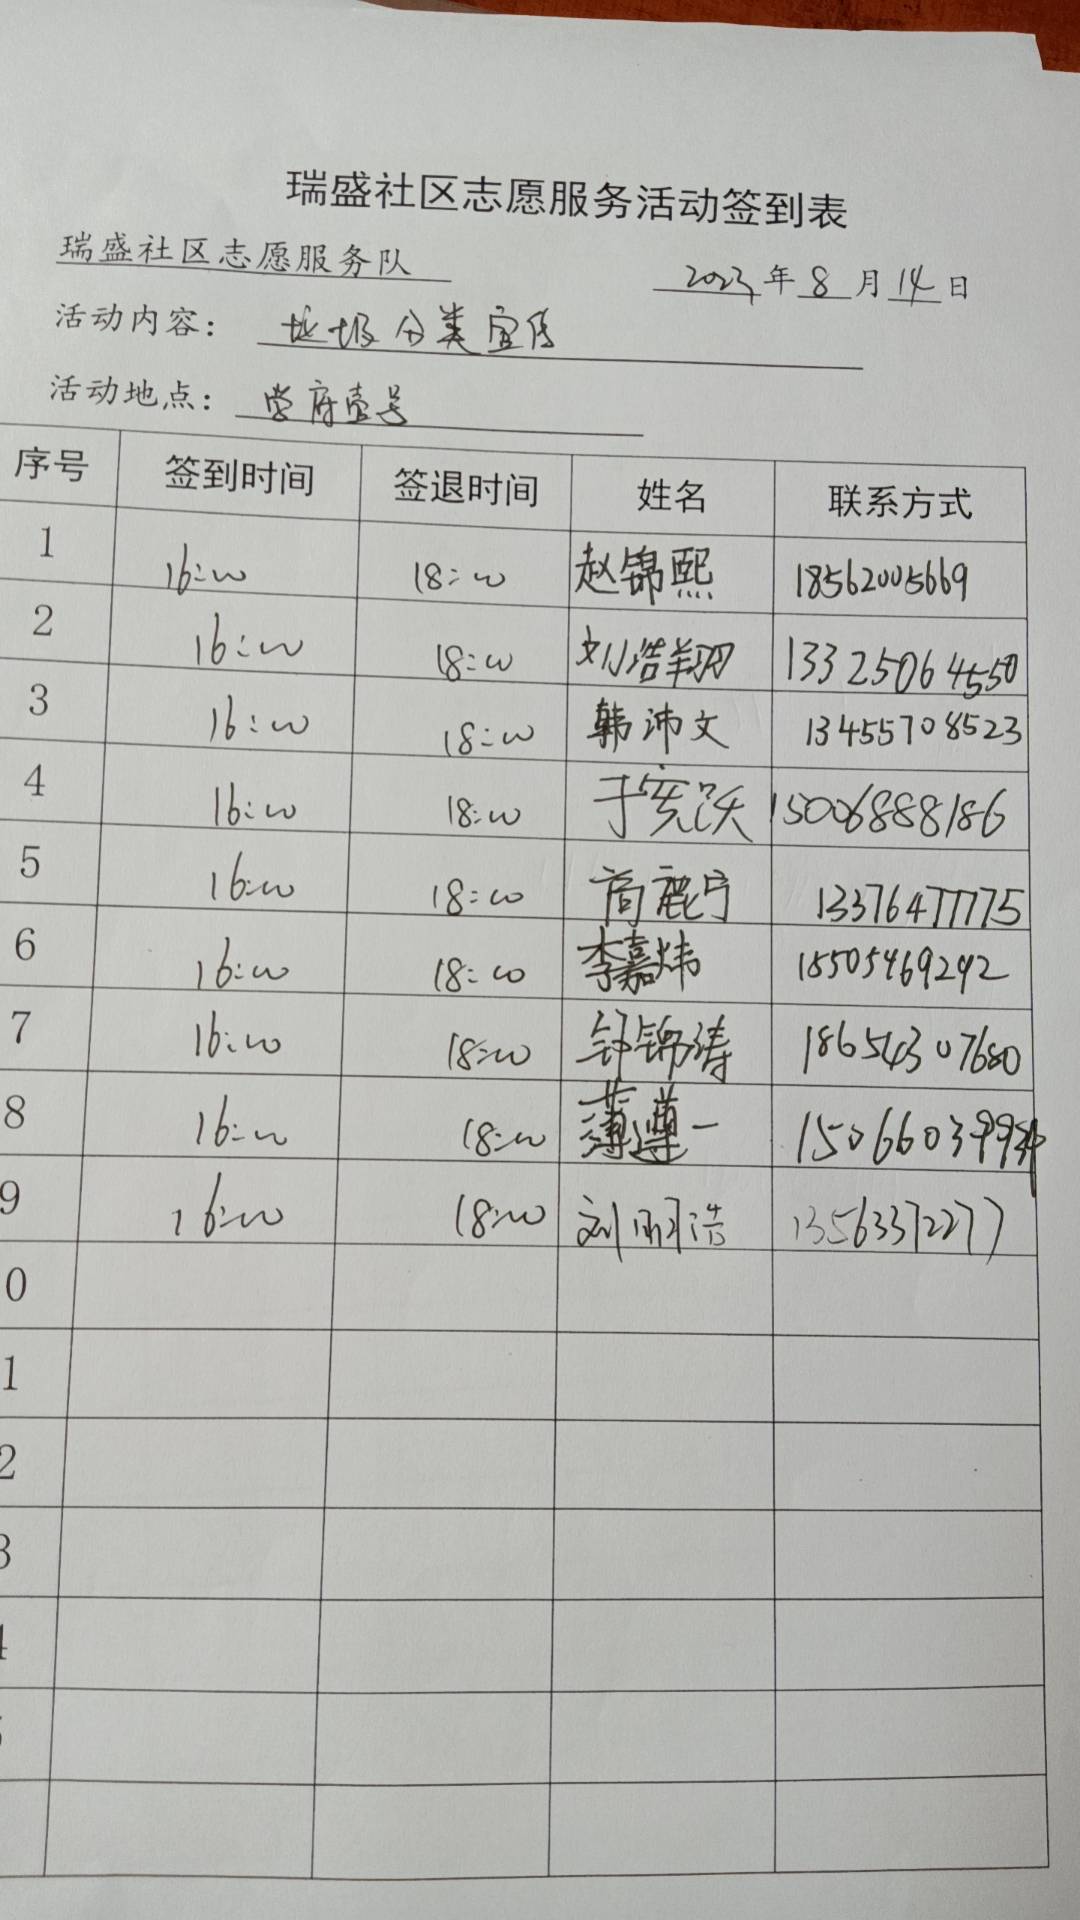 瑞盛社区志愿服务活动签到表
瑞盛社区志愿服务队 2023年8月14日
活动内容： 垃圾分类宣传
活动地点： 学府壹号
序号 签到时间 签退时间 姓名 联系方式
1 16:00 18:00 赵锦熙 18562005669
2 16:00 18:00 刘浩翔 13325064550
3 16:00 18:00 韩沛文 13455708523
4 16:00 18:00 15006888186
5 16:00 18:00 商鹿宁 13376477775
6 16:00 18:00 李嘉炜 18505469292
7 16:00 18:00 锦涛 18654307680
8 16:00 18:00 薄遵一
9 16:00 18:00 刘明浩 13563372277
0
1
2
3
4